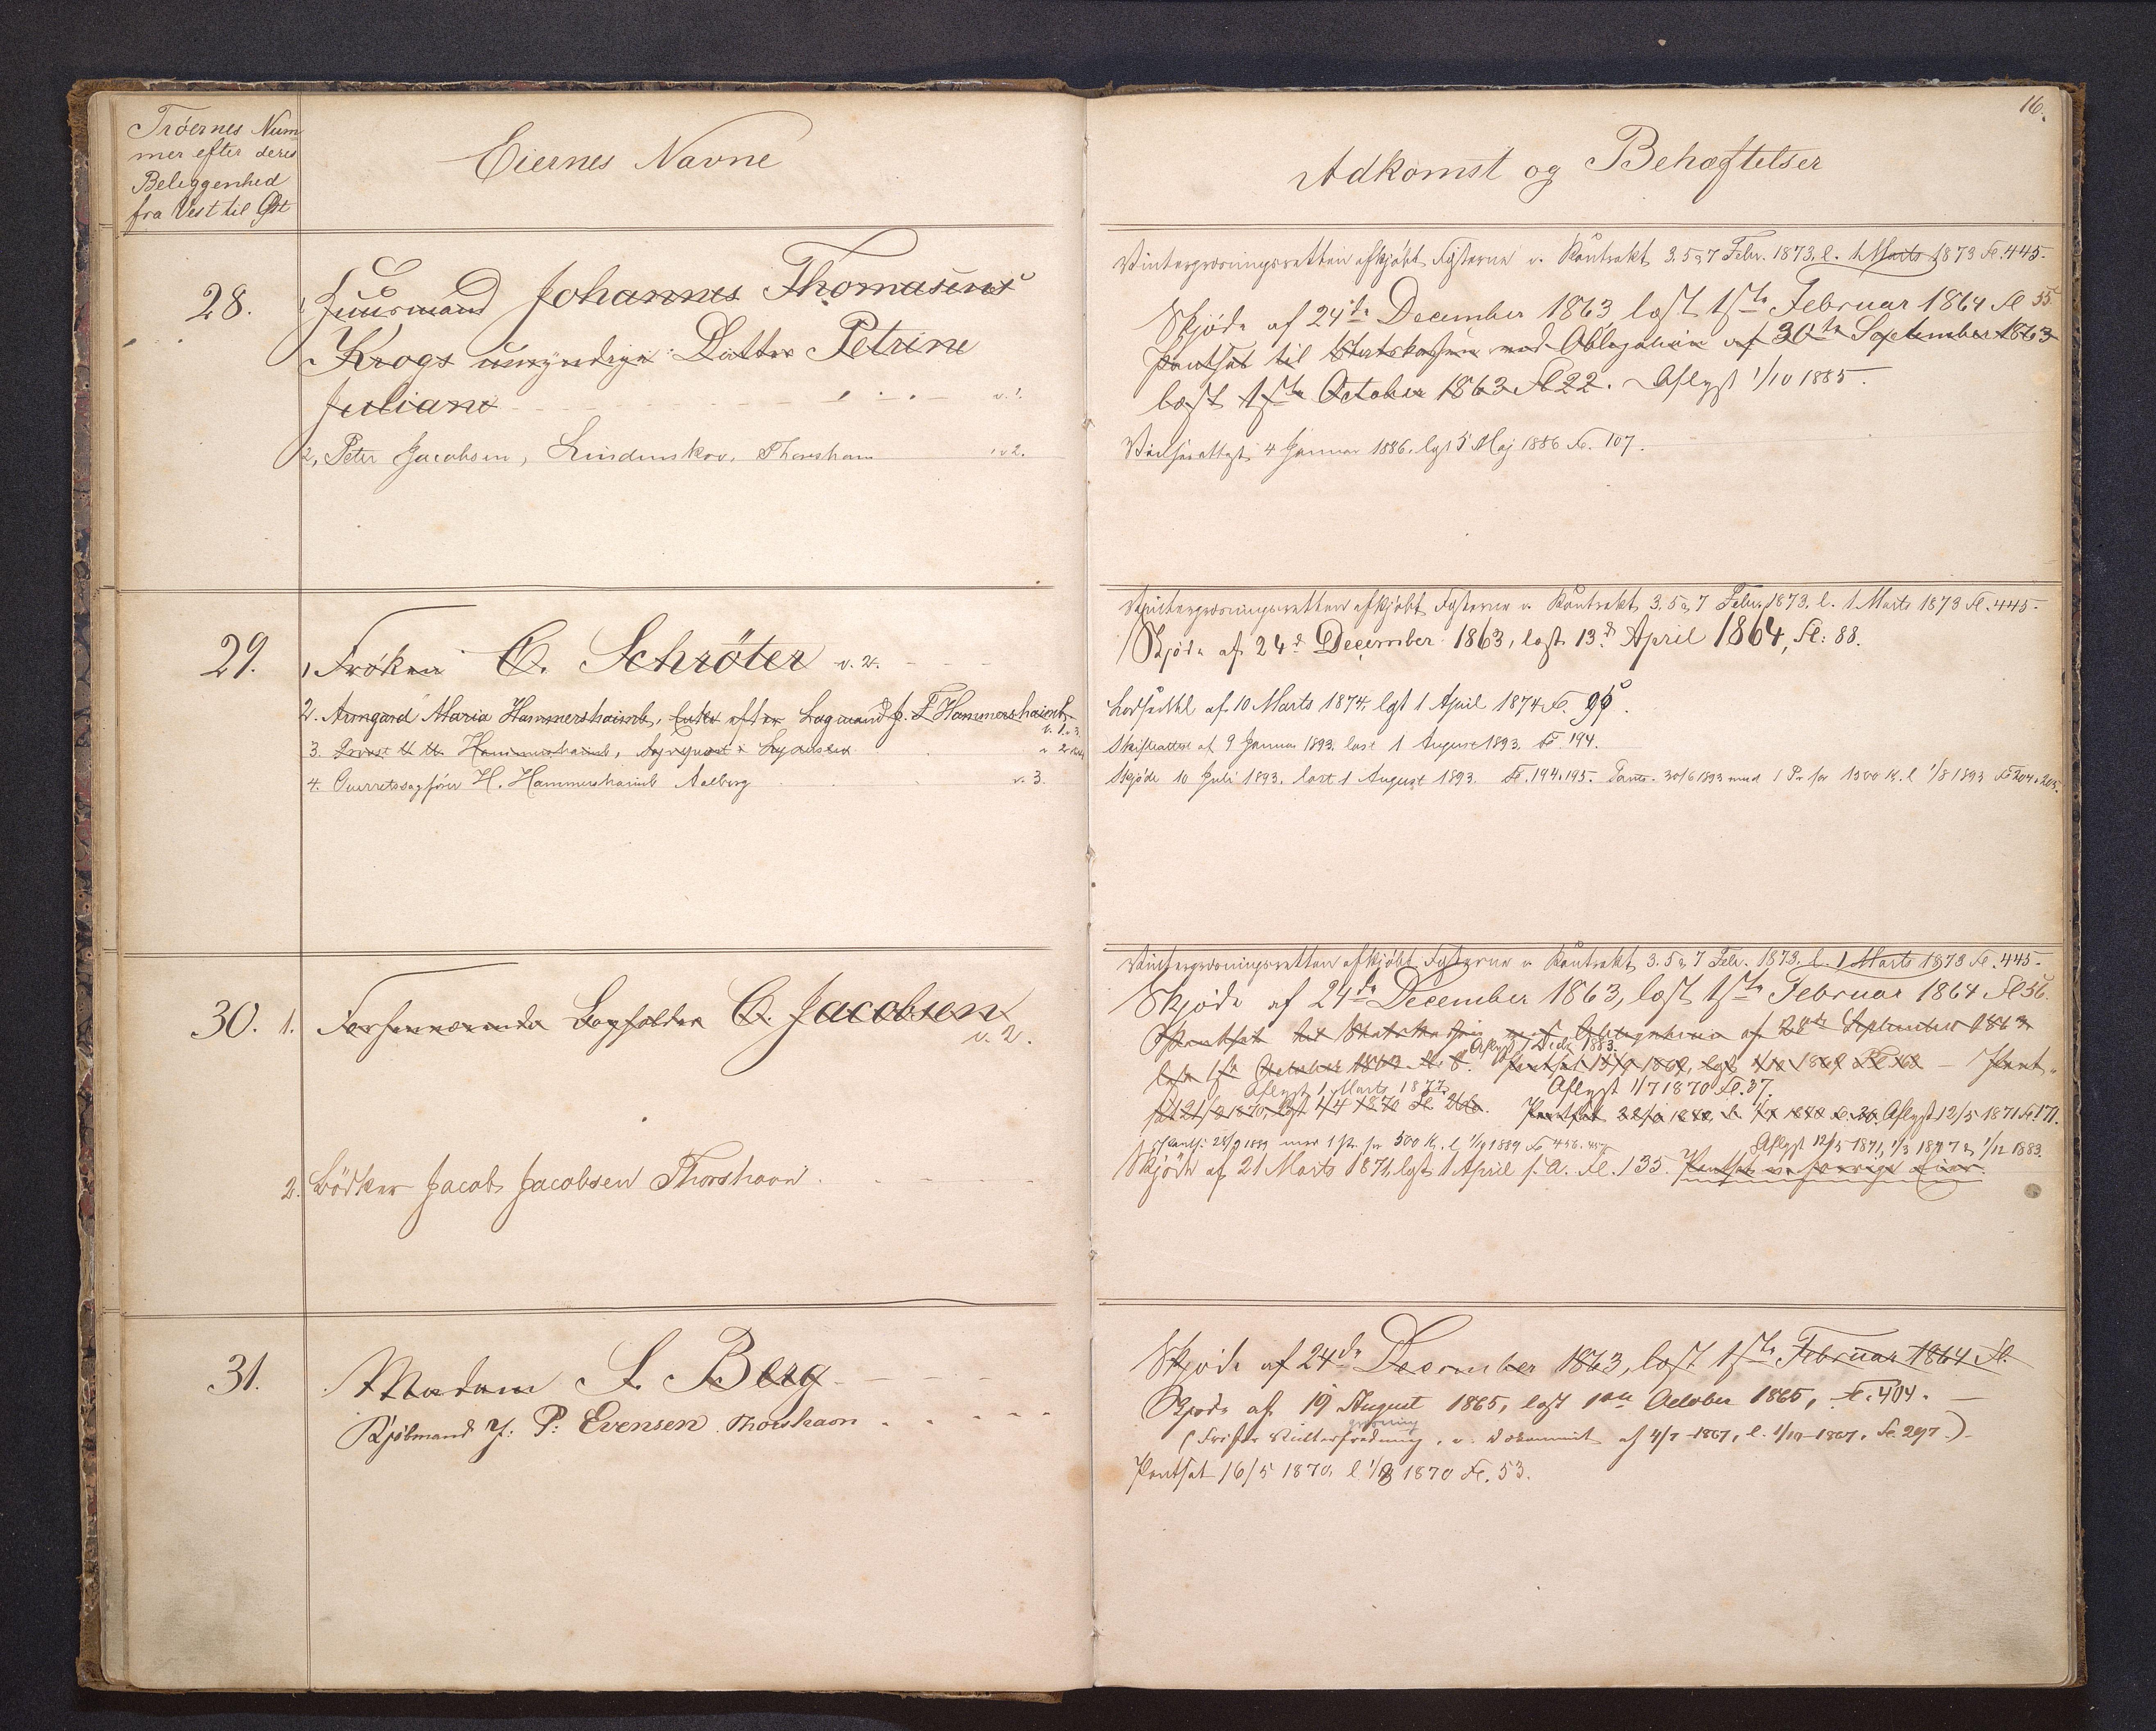 16.
Tróernes Num
mer efter deres
Beliggenhed
fra Vest til Øst
Eiernes Navne
Adkomst og Behæftelser
28.
Huusmand Johannes Thomasens
Krogs umyndige Datter Petrine
Juliane
2, Peter Jacobsen, Lindenskov, Thorshavn
Vintergræsningsretten afkjöbt Fæsterne v. Kontrakt 3. 5 & 7 Febr. 1873. l. 1 Marts 1873 Fl. 445.
Skjöde af 24de December 1863 læst 1ste Februar 1864 Fl 55
Pantsat til Statskassen med Obligation af 30te September 1863
læst 1ste October 1863 Fl 22. Aflyst 1/10 1885.
4 Januar 1886. læst 5 Maj 1886 Fl. 107.
29.
1 Frøken C. Schröter v. 2.
2. Armgard Maria Hammershaimb, Enke efter Lagmand J. F. Hammershaimb
v. 1. 3.
3. Provst V. U. Hammershaimb,
4. Overretssagförer H. Hammershaimb Aalborg v. 3.
Vintergræsningsretten afkjöbt Fæsterne v. Kontrakt 3. 5 & 7 Febr. 1873. l. 1 Marts 1873 Fl. 445.
Skjöde af 24de December 1863, læst 13de April 1864, Fl: 88.
Lodseddel af 10 Marts 1874. læst 1 April 1874 Fl.
Skifteattest af 9 Januar 1893. læst 1 August 1893. Fl. 194.
Skjöde 10 Juli 1893. læst 1 August 1893. Fl. 194. 195. Pants. 30/6 1893 med 1 Pr. for 1500 K. l. 1/8 1893 Fl 204. 205.
30. 1. Forhenværende Bogholder C. Jacobsen
v. 2.
2. Bödker Jacob Jacobsen Thorshavn.
Vintergræsningsretten afkjöbt Fæsterne v. Kontrakt 3. 5 & 7 Febr. 1873. l. 1 Marts 1873 Fl. 445.
Skjöde af 24de December 1863, læst 1ste Februar 1864 Fl 56.
Pantsat til Statskassen med Obligation af 28de September 1863
Aflyst Decbr. 1883.
læst 1ste October 1863 Fl. 8. Pantsat 1869, læst 1869 — Pant-
Aflyst 1 Marts 1877. Aflyst 1/7 1870 Fl. 37.
sat 1870, læst 1/4 1870 Fl. Pantsat Aflyst 12/5 1871 Fl. 171.
Pants: 1889 med 1 Pr. for 500 K. l. 1889 Fl 456. Aflyst 12/5 1871, 1/3 1877 & 1/12 1883.
Skjöde af 21 Marts 1871, læst 1 April s. A. Fl. 135. Pantsat af forrige Eier.
31.
Madam S. Berg
Kjöbmand J. P. Evensen Thorshavn
Skjöde af 24de December 1863, læst 1ste Februar 1864 Fl.
Skjöde af 19 August 1865, læst 1ste October 1865, Fl. 404.
græsning
(Fri for Vinterfredning, v. Dokument af 4/7 1867, l. 1/10 1867. Fl. 297.)
Pantsat 16/5 1870, l. 1/8 1870 Fl. 53.